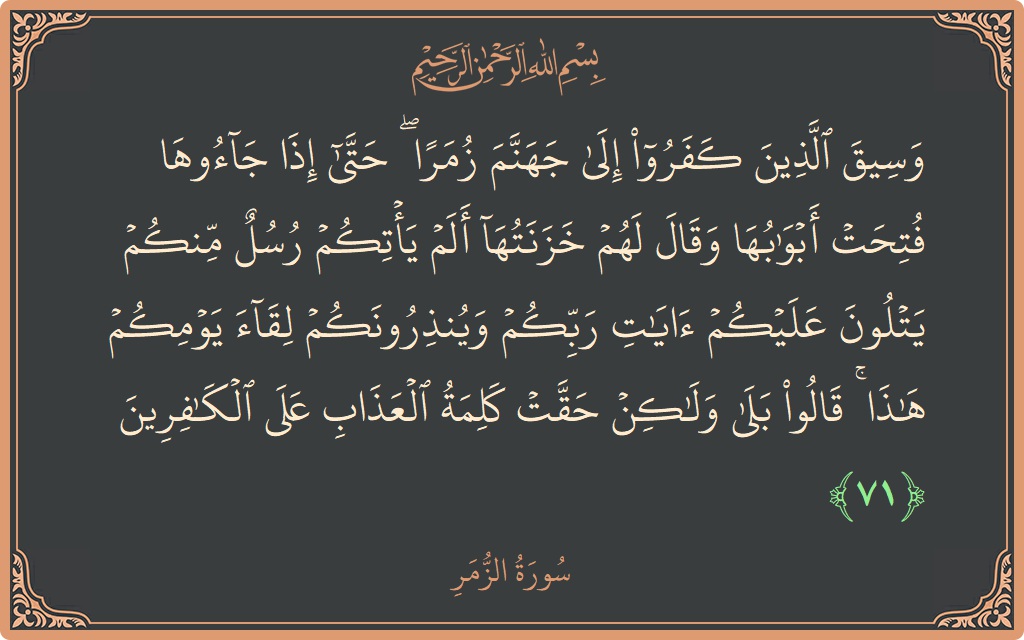 بِسْمِ اللَّهِ الرَّحْمَٰنِ الرَّحِيمِ
وَسِيقَ ٱلَّذِينَ كَفَرُوٓا۟ إِلَىٰ جَهَنَّمَ زُمَرًا ۖ حَتَّىٰٓ إِذَا جَآءُوهَا
فُتِحَتْ أَبْوَٰبُهَا وَقَالَ لَهُمْ خَزَنَتُهَآ أَلَمْ يَأْتِكُمْ رُسُلٌ مِّنكُمْ
يَتْلُونَ عَلَيْكُمْ ءَايَـٰتِ رَبِّكُمْ وَيُنذِرُونَكُمْ لِقَآءَ يَوْمِكُمْ
هَـٰذَا ۚ قَالُوا۟ بَلَىٰ وَلَـٰكِنْ حَقَّتْ كَلِمَةُ ٱلْعَذَابِ عَلَى ٱلْكَـٰفِرِينَ
﴿٧١﴾
سُورَةُ الزُّمَرِ